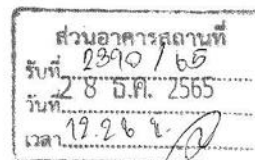 ส่วนอาคารสถานที่
รับที่ 2390/65
วันที่ 28 ธ.ค. 2565
เวลา 12.26 น.